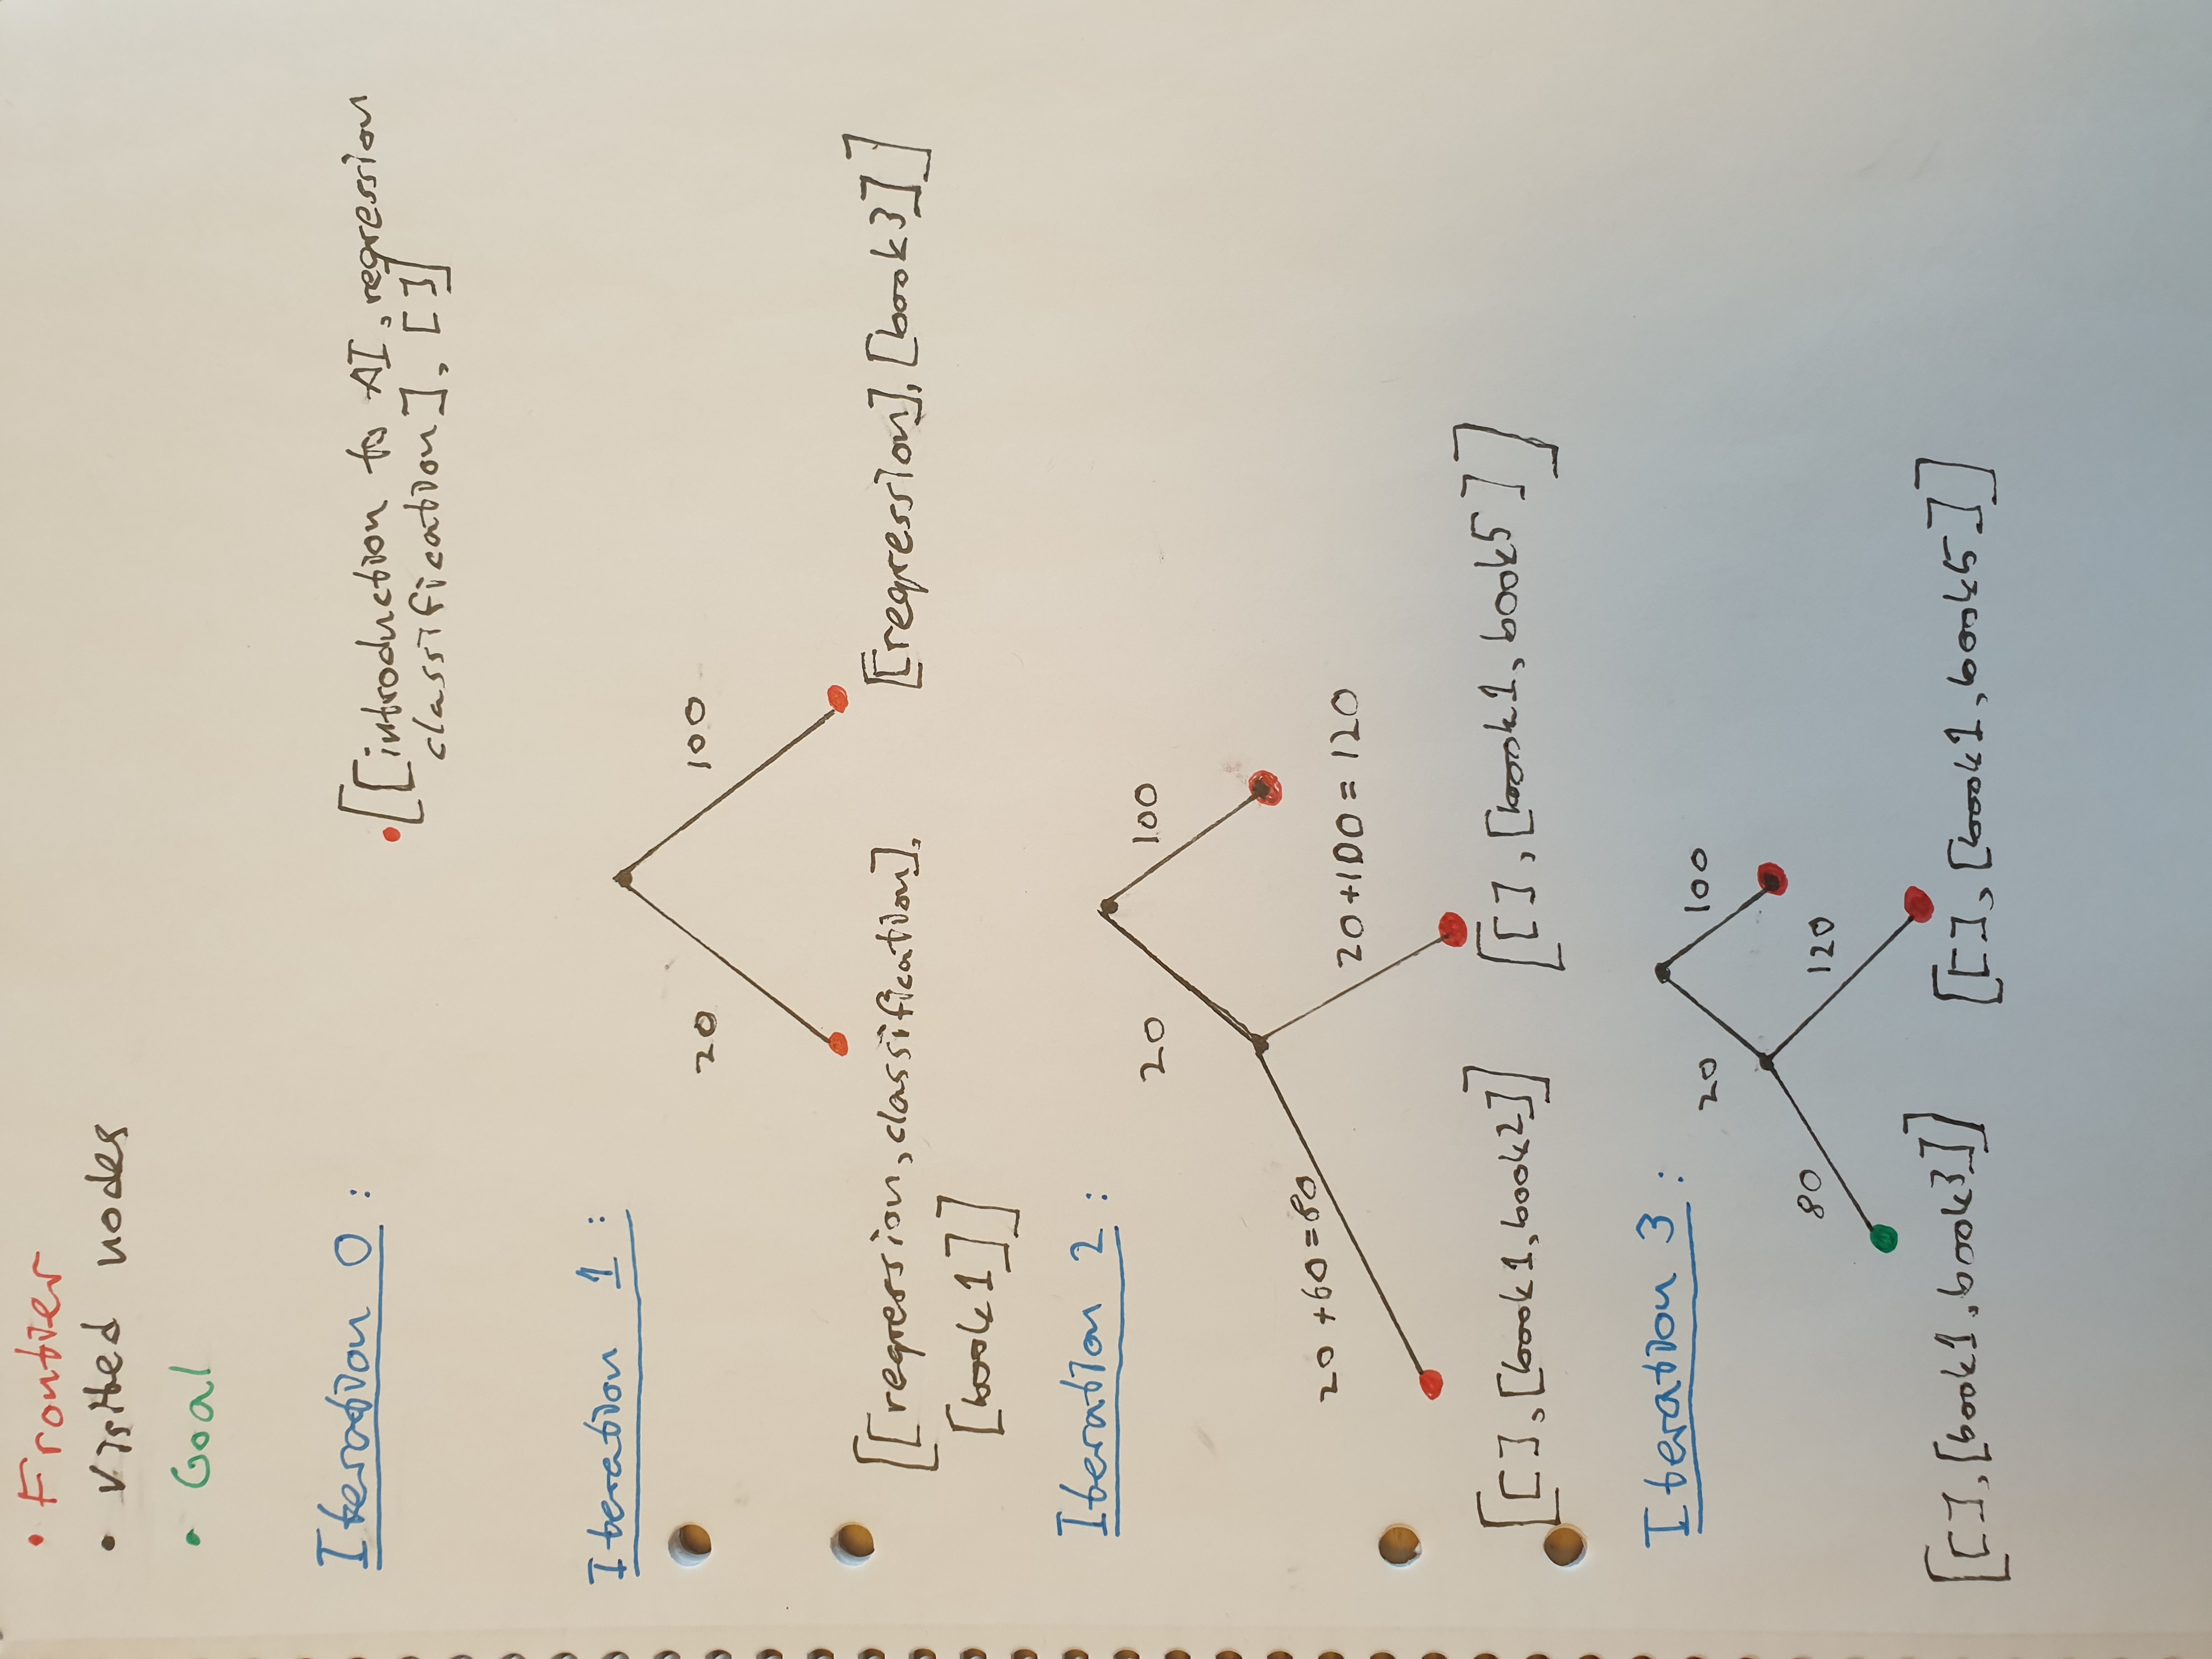 • Frontier
• Visited nodes
• Goal
Iteration 0 :
[[introduction to AI, regression
classification], []]
Iteration 1 :
20
100
[[regression, classification],
[book1]]
[[regression], [book3]]
Iteration 2 :
20
100
20 +60=80
20+100 = 120
[[], [book1, book2]]
[[], [book1, book5]]
Iteration 3 :
20
100
80
120
[[], [book1, book3]]
[[], [book1, book5]]